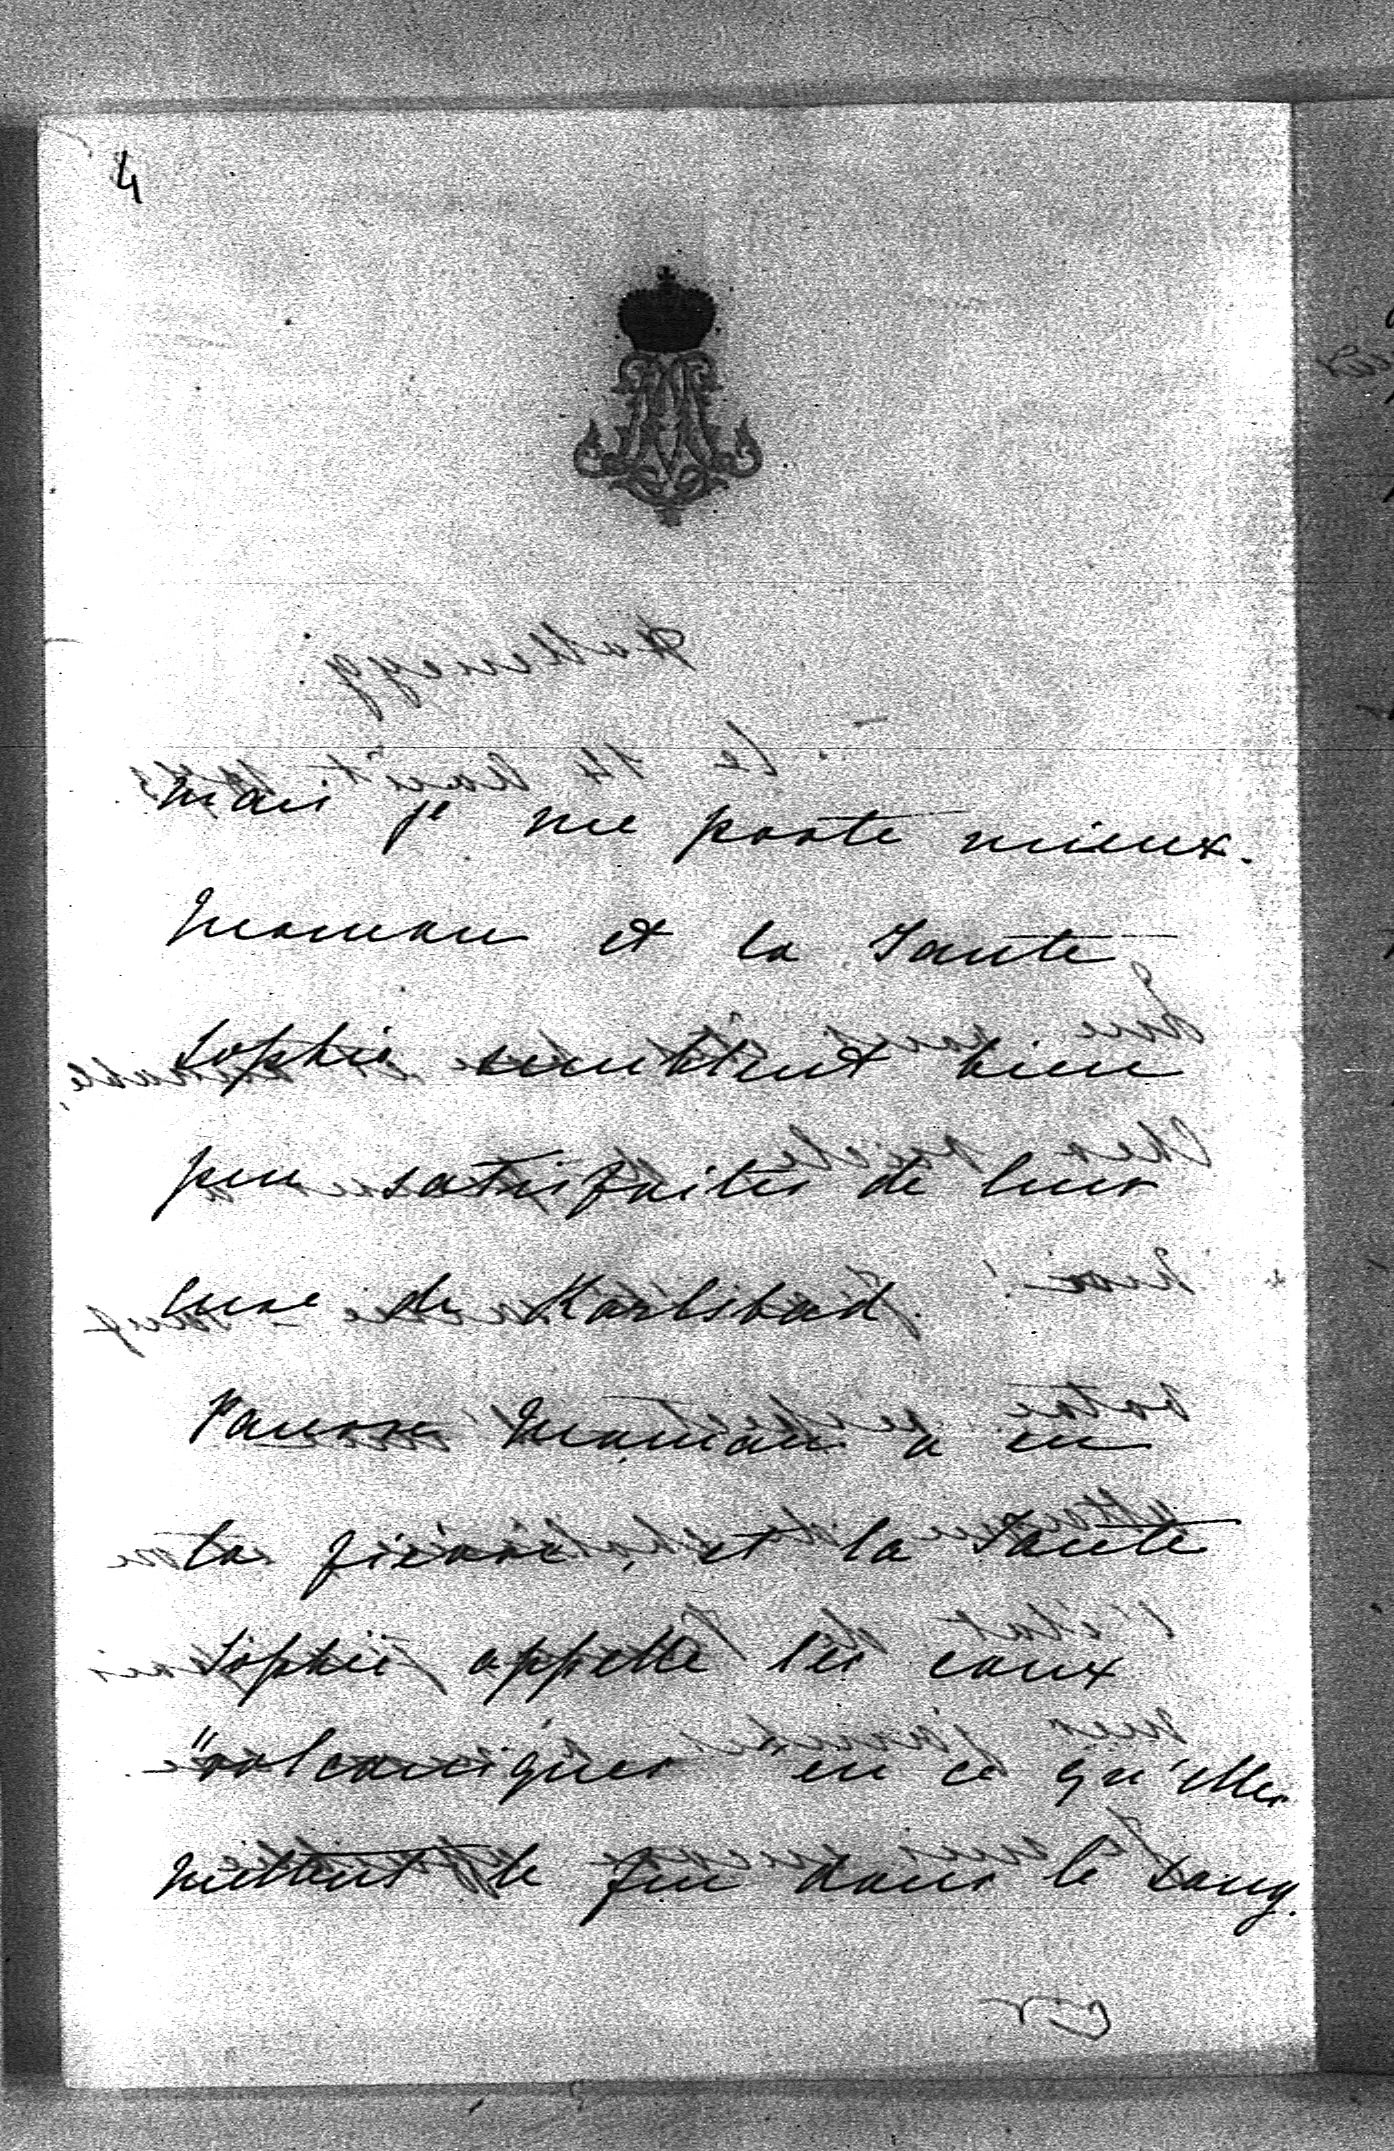 4
mais je me porte mieux.
Maman et la Tante
Sophie semblent bien
peu satisfaites de leur
cure de Karlsbad.
Pauvre Maman a eu
la fièvre, et la Tante
Sophie appelle les eaux
"volcaniques en ce qu'elles
mettent le feu dans le sang.